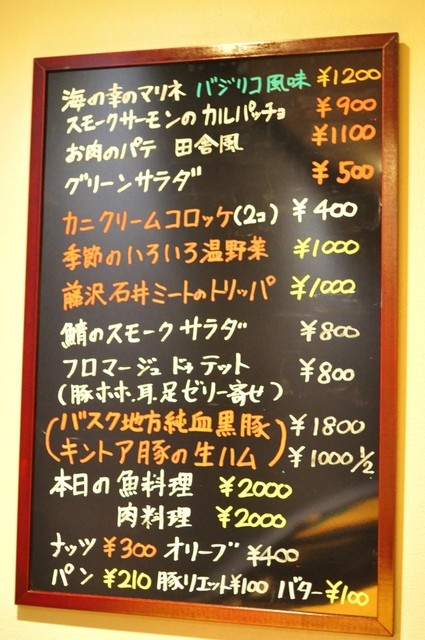 海の幸のマリネ バジリコ風味 ¥1200
スモークサーモンのカルパッチョ ¥900
お肉のパテ 田舎風 ¥1100
グリーンサラダ ¥500
カニクリームコロッケ(2コ) ¥400
季節のいろいろ温野菜 ¥1000
藤沢石井ミートのトリッパ ¥1000
鯖のスモークサラダ ¥800
フロマージュ ドゥ テット ¥800
(豚ホホ、耳、足ゼリー寄せ)
(バスク地方純血黒豚 ¥1800
キントア豚の生ハム) ¥1000 1/2
本日の魚料理 ¥2000
肉料理 ¥2000
ナッツ ¥300 オリーブ ¥400
パン ¥210 豚リエット¥100 バター¥100